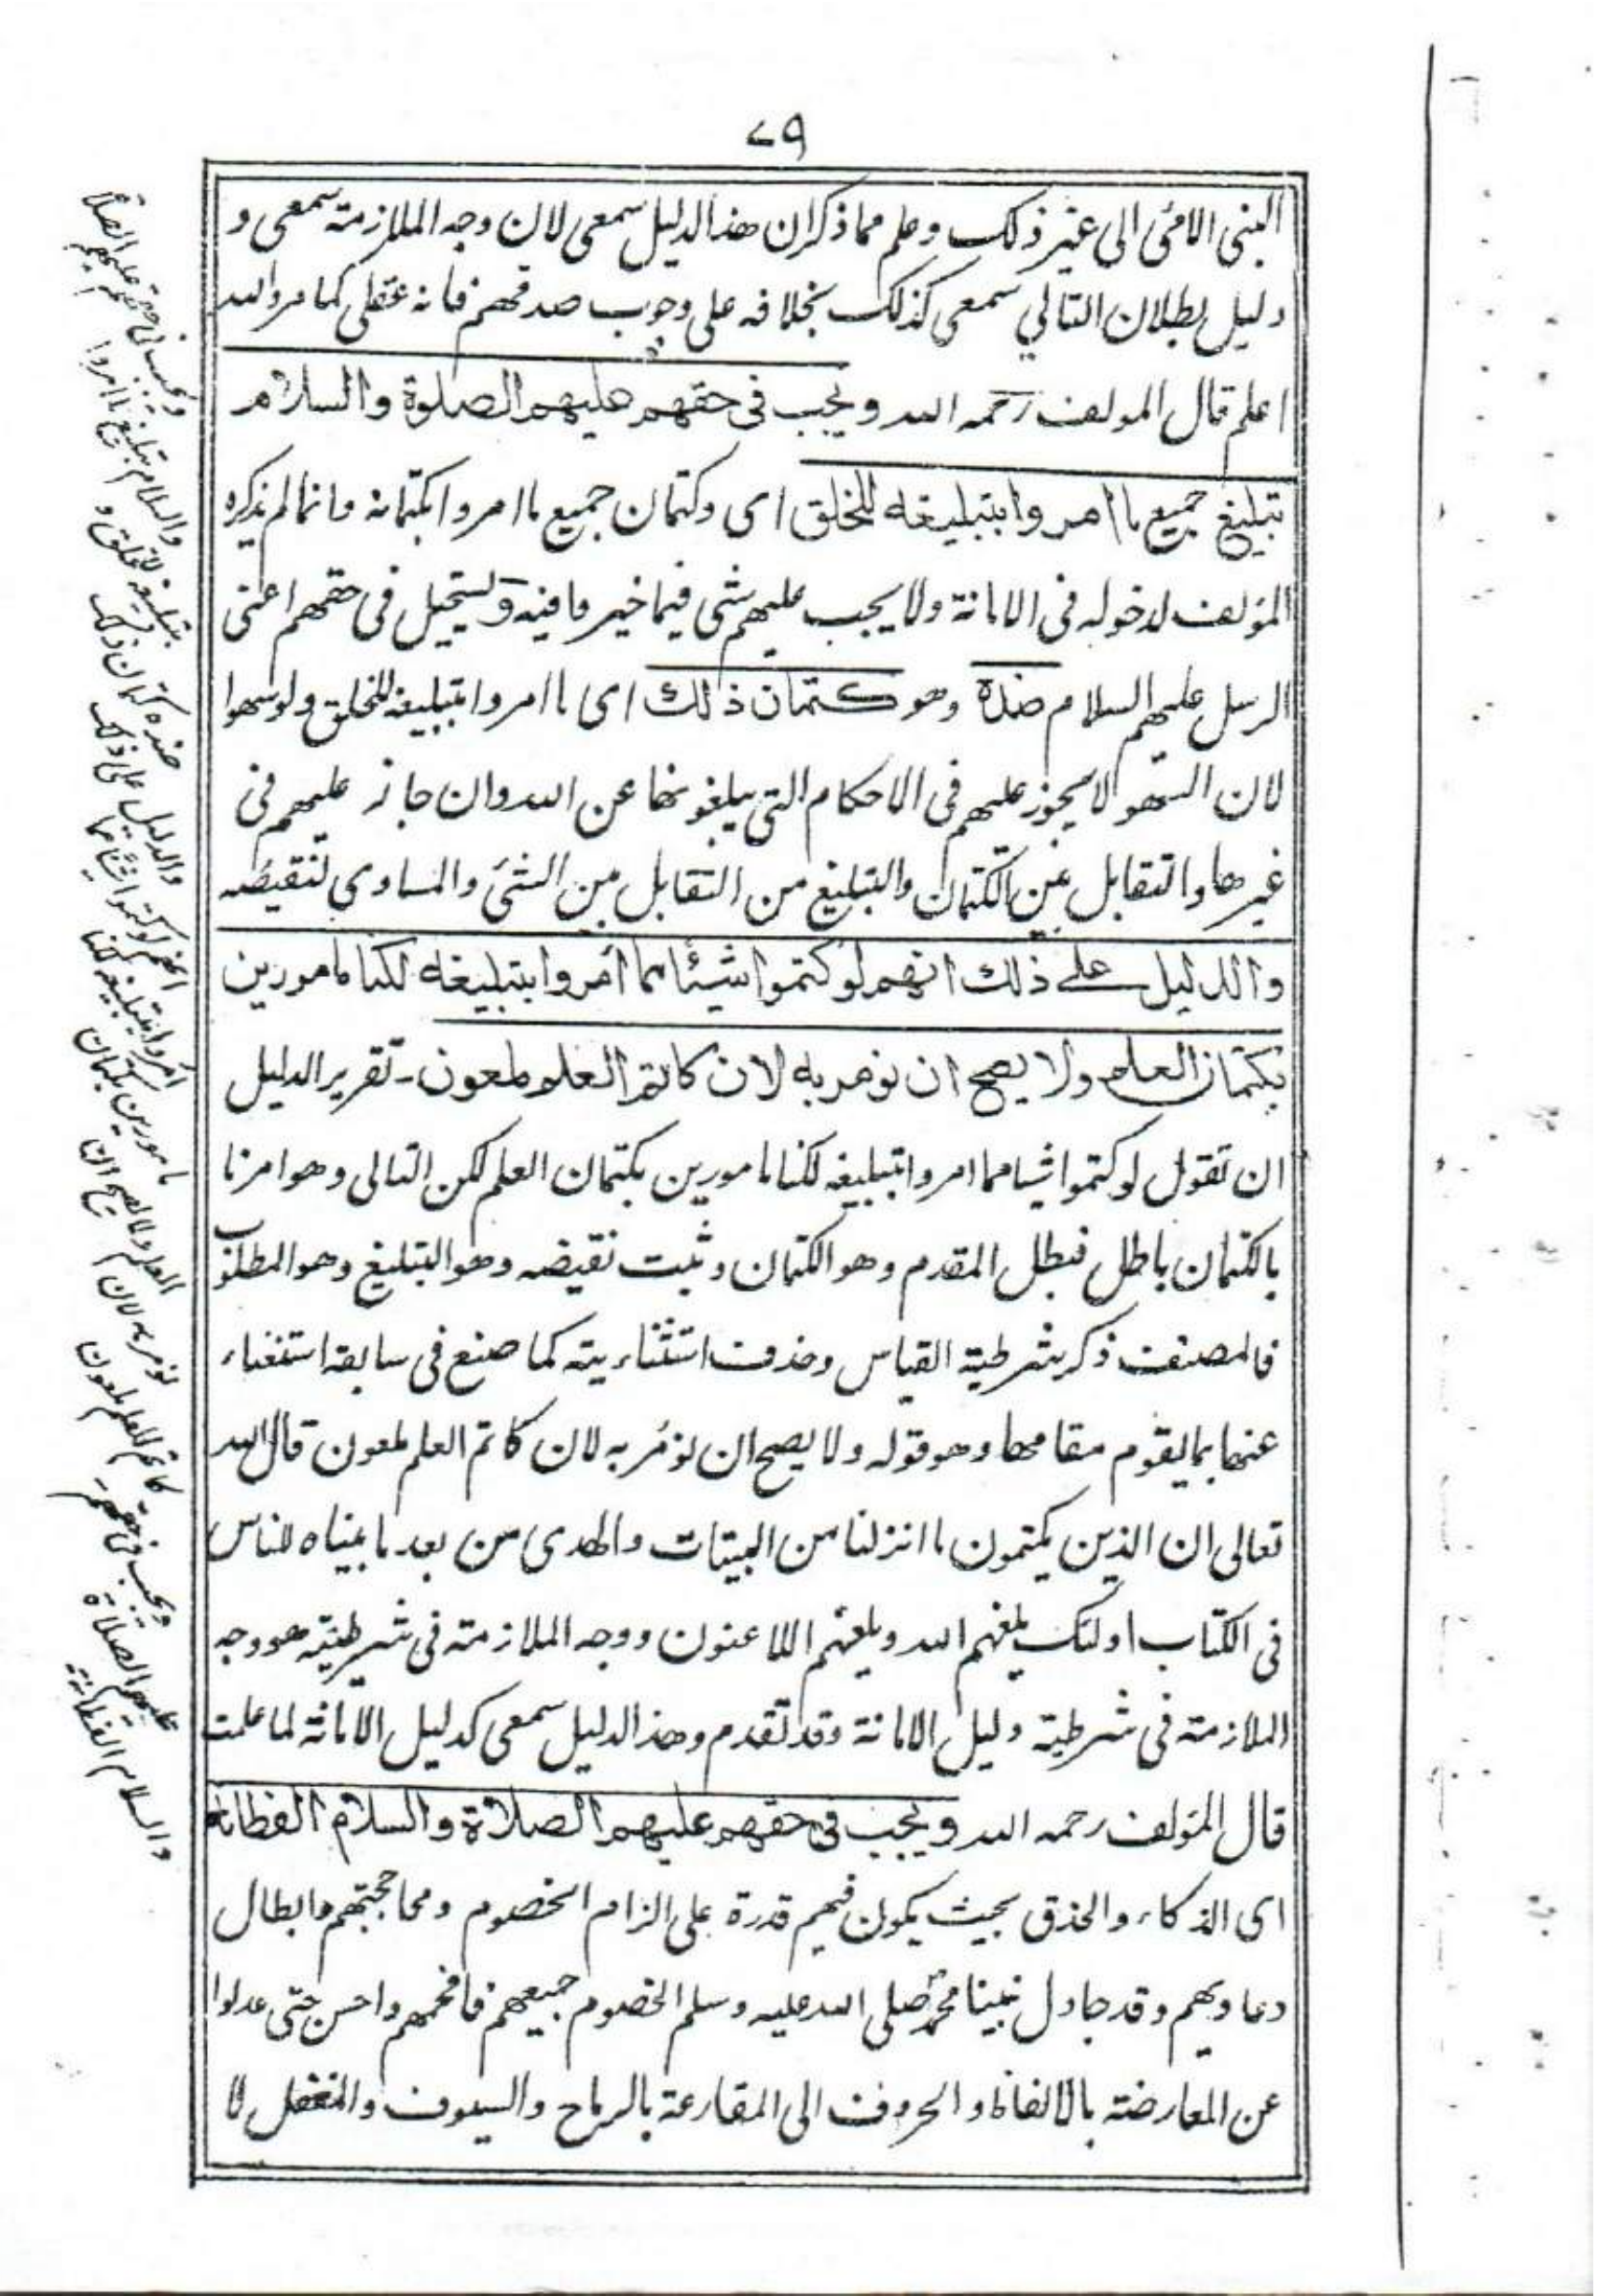 ٧٩
النبى الامى الى غير ذلك وعلم مما ذكران هذا الدليل سمعى لان وجه الملازمته سمعى و
دليل بطلان التالي سمعى كذلك بخلافه على وجوب صدقهم فانه عقلى كما مر والله
اعلم قال المولف رحمه الله ويجب فى حقهم عليهم الصلوة والسلام
تبليغ جميع ما امروا بتبليغه للخلق اى وكتمان جميع ما امروا بكتمانه وانما لم يذكره
المؤلف لدخوله فى الامانة ولا يجب عليهم شى فيما خير وا فيه ويستحيل فى حقهم اعنى
الرسل عليهم السلام ضده وهو كتمان ذلك اى ما امروا بتبليغه للخلق ولو سهوا
لان السهو لا يجوز عليهم فى الاحكام التى يبلغونها عن الله وان جاز عليهم فى
غيرها والتقابل بين الكتمان والتبليغ من التقابل بين الشئ والمساوى لنقيضه
والدليل على ذلك انهم لو كتموا شيئا مما أمروا بتبليغه لكنا مامورين
بكتمان العلم ولا يصح ان نومر به لان كاتم العلم ملعون - تقرير الدليل
ان تقول لو كتموا شيا مما امروا بتبليغه لكنا مامورين بكتمان العلم لكن التالى وهو امرنا
بالكتمان باطل فبطل المقدم وهو الكتمان وثبت نقيضه وهو التبليغ وهو المطلوب
فالمصنف ذكر شرطية القياس وحذف استثناءيته كما صنع فى سابقه استغناء
عنها بما يقوم مقامها وهو قوله ولا يصح ان نومر به لان كاتم العلم ملعون قال الله
تعالى ان الذين يكتمون ما انزلنا من البينات والهدى من بعد ما بيناه للناس
فى الكتاب اولئك يلعنهم الله ويلعنهم اللاعنون ووجه الملازمته فى شرطيته هو وجه
الملازمته فى شرطية دليل الامانة وقد تقدم وهذا الدليل سمعى كدليل الامانة لما علمت
قال المؤلف رحمه الله ويجب فى حقهم عليهم الصلاة والسلام الفطانة
اى الذكاء والحذق بحيث يكون فيهم قدرة على الزام الخصوم ومحاججتهم وابطال
دعاويهم وقد جادل نبينا محمد صلى الله عليه وسلم الخصوم جميعهم فافحمهم واحسن حتى عدلوا
عن المعارضته بالالفاظ والحروف الى المقارعة بالرماح والسيوف والمغفل لا
ويجب فى حقهم عليهم الصلاة
والسلام تبليغ ما امروا
بتبليغه للخلق و
ضده كتمان ذلك
والدليل على ذلك
انهم لو كتموا شيئا مما
أمروا بتبليغه لكنا
مامورين بكتمان
العلم ولا يصح ان
نومر به لان
كاتم العلم ملعون
ويجب فى حقهم
عليهم الصلاة
والسلام الفطانة